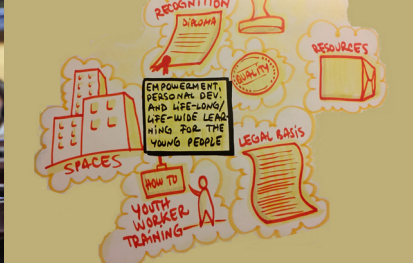 RECOGNITION
DIPLOMA
QUALITY
RESOURCES
EMPOWERMENT,
PERSONAL DEV.
AND LIFE-LONG/
LIFE-WIDE LEAR-
NING FOR THE
YOUNG PEOPLE
SPACES
LEGAL BASIS
HOW TO
YOUTH
WORKER
TRAINING